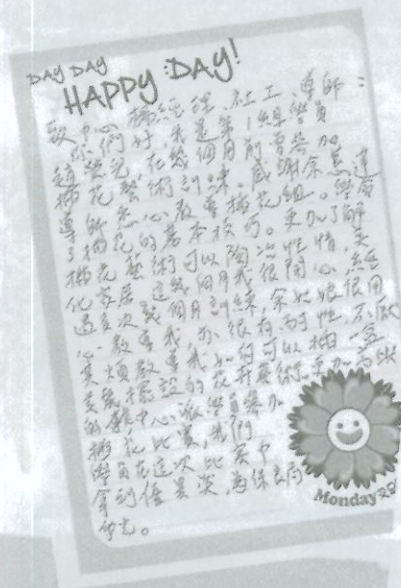 DAY DAY
HAPPY :DAY!
致中心楊經理、社工、導師：
你們好，我是第1組學員
趙，在幾個月前曾參加
插花藝術訓練。感謝余
導師悉心教導插花組。學 
了插花的基本技巧。更加了解
插花藝術可以陶冶性情，美
化家居。這幾個月我很開心，經
過多次 個月訓練，余姑娘很用
心教導我，亦很有耐性，不厭
其煩教導我如何可以插一盆
美麗擺設的花卉藝術。更加為此
的 中心派學員參加
插花比賽，我們
學員在這次比賽中
拿到佳異獎，為保良局
爭光。
Monday